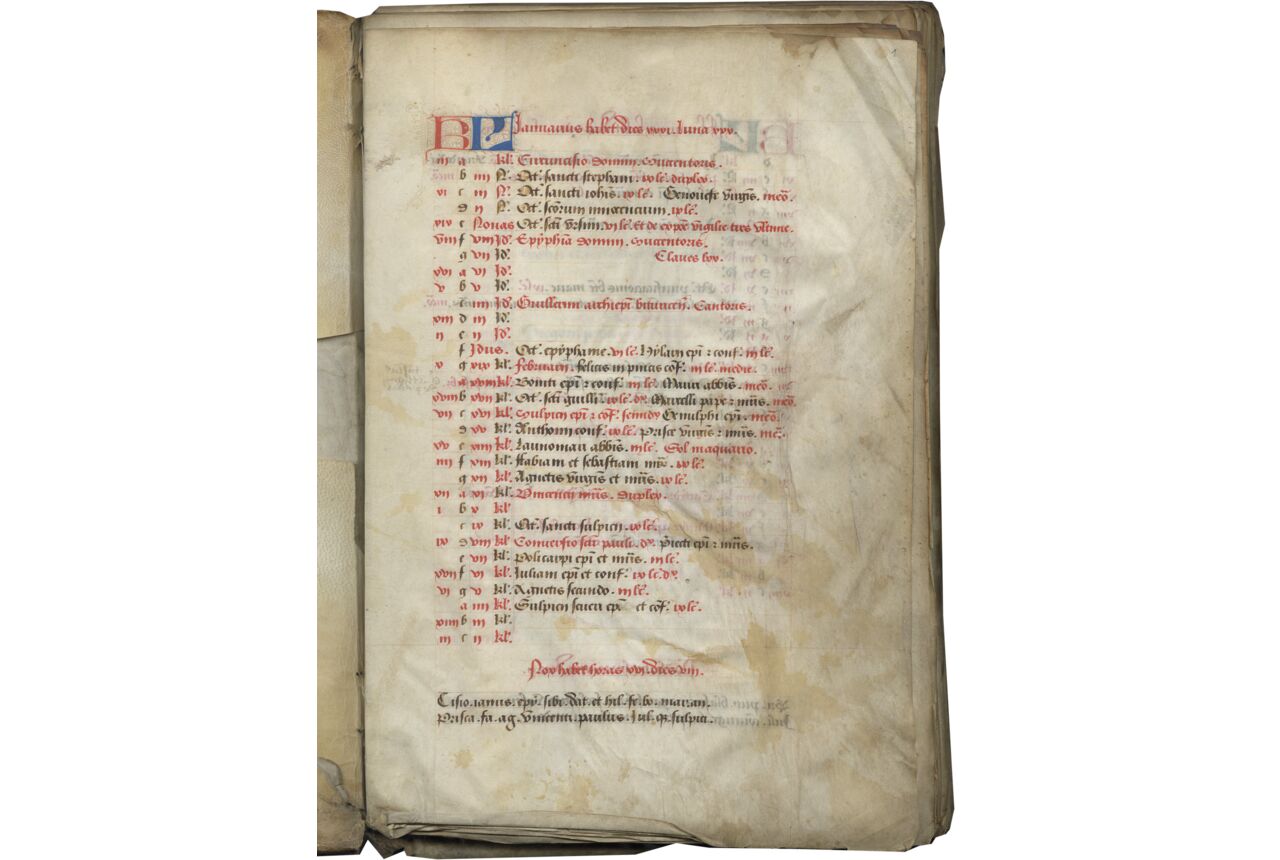 1
KL Januarius habet dies xxxi. luna xxx.
iii a kl. Circuncisio domini. cuicentoris.
b iiii N. Oct. sancti stephani. ix le. duplex.
xi c iii N. Oct. sancti iohis. ix le. Genovefe virgis. meo.
d ii N. Oct. scorum innocencium. ix le.
xix e Nonas Oct. scti Ursini. ix le. et de cope vigilie tres ultime.
viii f viii Id. Epyphia domini. cuicentoris.
g vii Id. Claves lxx.
xvi a vi Id.
v b v Id.
c iiii Id. Guillermi archiepi bituricen. Cantoris.
xiii d iii Id.
ii e ii Id.
f Idus. Oct. epyphanie. ix le. Hylarii epi z conf. iii le.
x g xix kl. februarii. felicis in pincis cof. iii le. medie.
a xviii kl. Boniti epi z conf. iii le. Mauri abbis. meo.
xviii b xvii kl. Oct. scti guilli. ix le. dx. Marcelli pape z mris. meo.
vii c xvi kl. Sulpicii epi z cof. semidx Genulphi epi. meo.
d xv kl. Anthonii conf. ix le. Prisce virgis z mris. meo.
xv e xiiii kl. Launomari abbis. iii le. Sol in aquario.
iiii f xiii kl. Fabiani et sebastiani mr. ix le.
g xii kl. Agnetis virgis et mris. ix le.
xii a xi kl. Vincencii mris. duplex.
i b x kl.
c ix kl. Oct. sancti sulpicii. ix le.
ix d viii kl. Conversio scti pauli. dx. Preiecti epi z mris.
e vii kl. Policarpi epi et mris. iii le.
xvii f vi kl. Juliani epi et conf. ix le. dx.
vi g v kl. Agnetis secundo. iii le.
a iiii kl. Sulpicii severi epi et cof. ix le.
xiiii b iii kl.
iii c ii kl.
Nox habet horas xvi. dies viii.
Cisio. ianus. epy. sibi. dat. et hil. fe. bo. mar. an.
Prisca. fa. ag. vincenti. paulus. Jul. ag. sulpici.